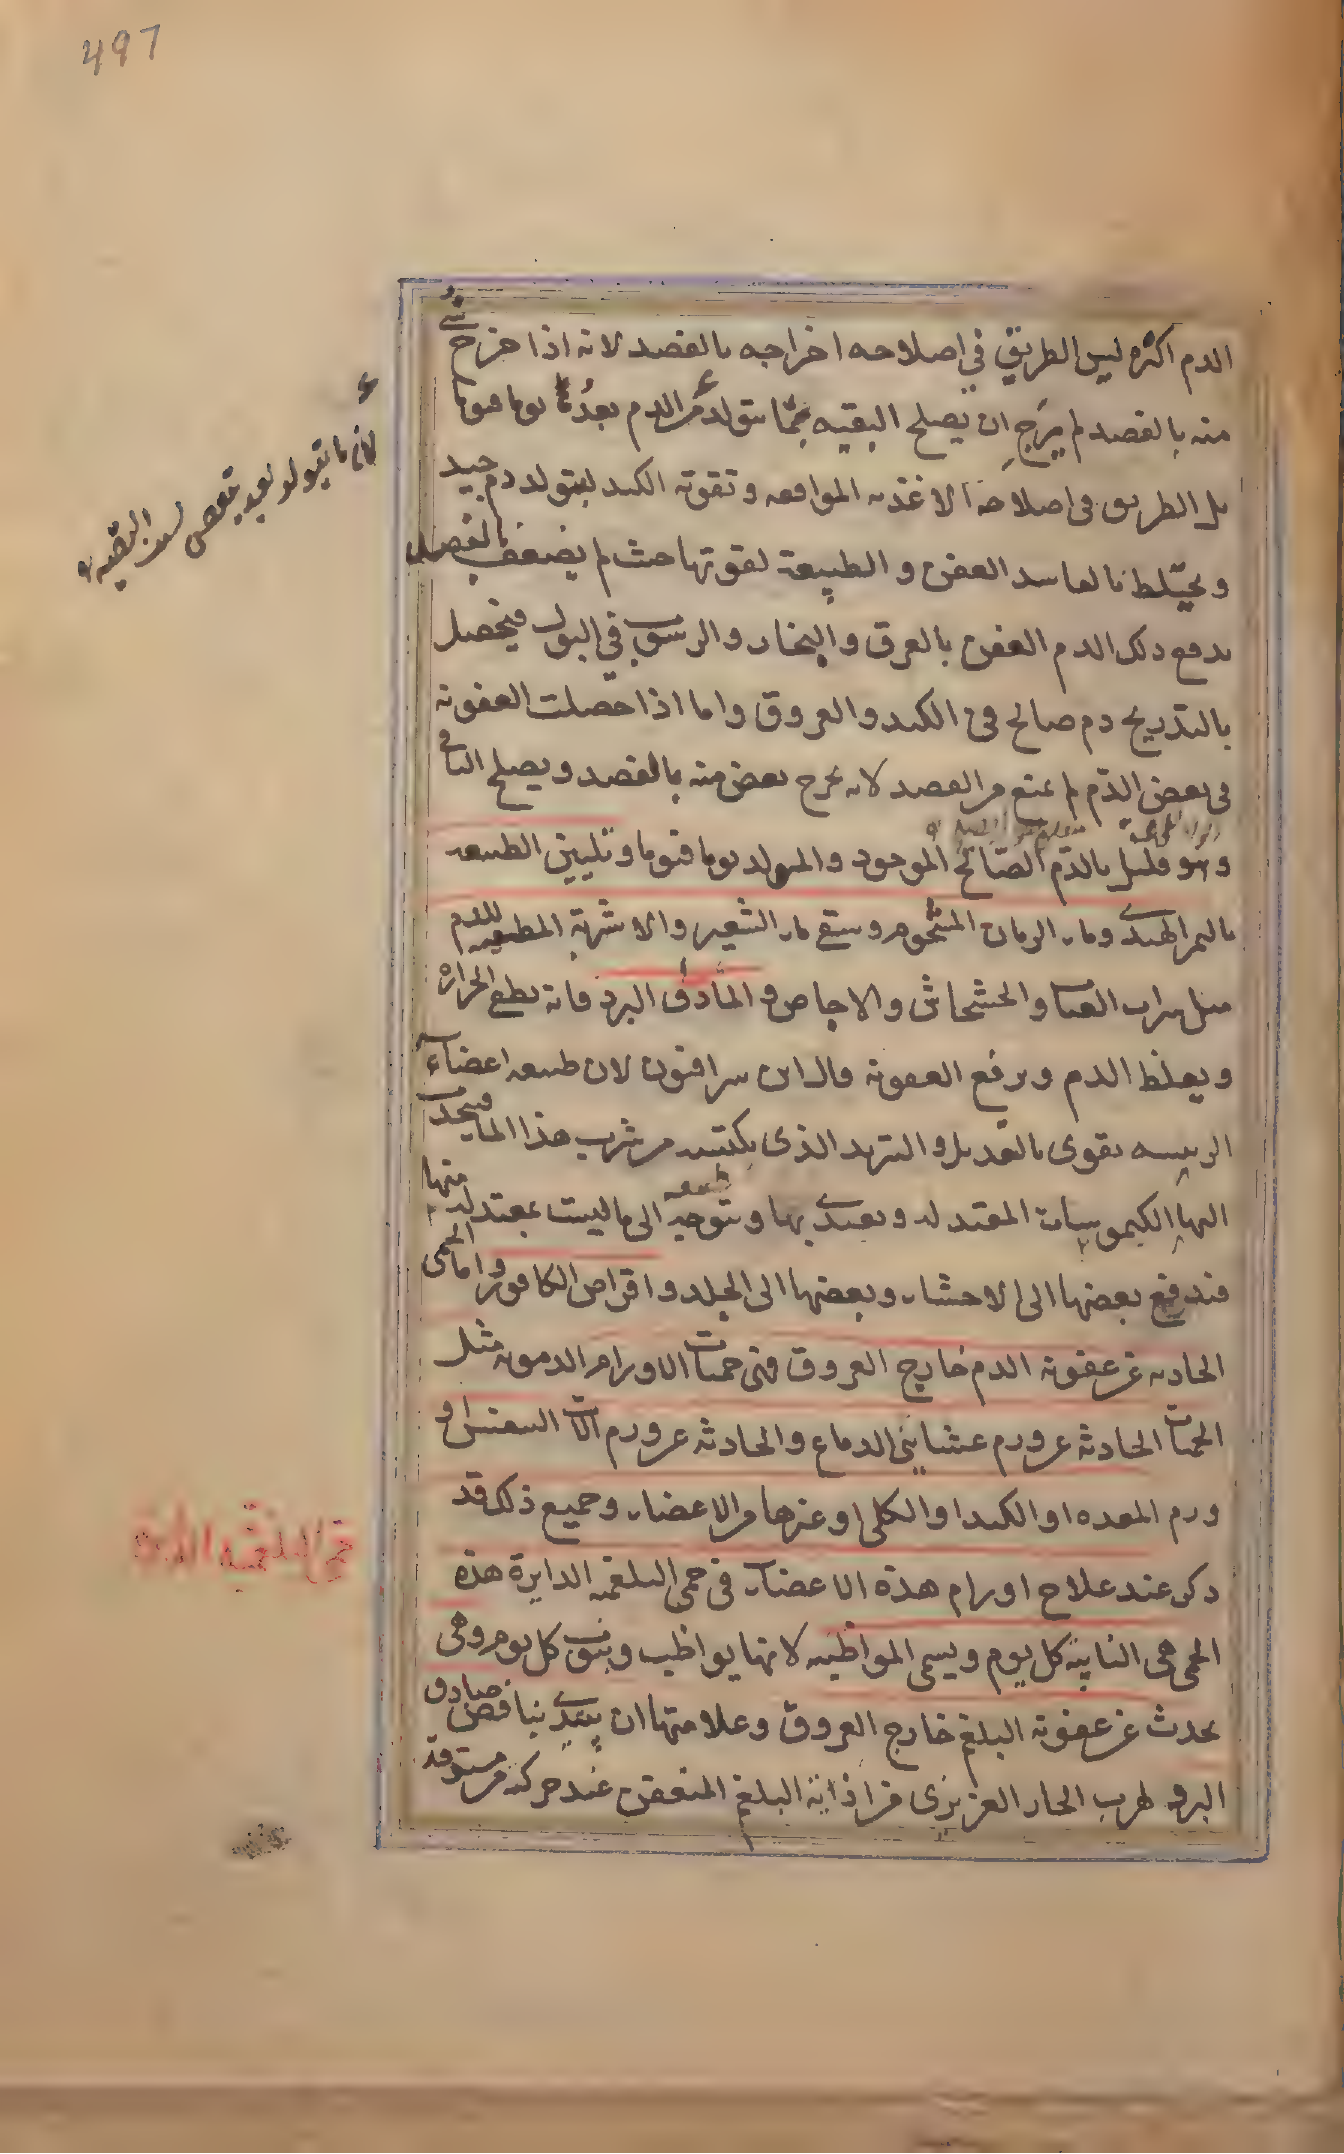 497
الدم اكثره ليس الطريق في اصلاحه اخراجه بالفصد لانه اذا خرج شئ
منه بالفصد لم يرج ان يصلح البقيه بما يتولد من الدم بعده يوما فيوما
بل الطريق في اصلاحه الاغذيه الموافقه و تقوية الكبد ليتولد دم جيد
و يختلط بالفاسد العفن و الطبيعة لقوتها حيث لم يضعف بالفصد
يدفع ذلك الدم العفن بالعرق و البخار و الرسوب في البول فيحصل
بالتدريج دم صالح في الكبد و العروق و اما اذا حصلت العفونة
في بعض الدم لم يمنع من الفصد لانه يخرج بعض منه بالفصد و يصلح الباقي
و هو قليل بالدم الصالح الموجود و المتولد يوما فيوما و تليين الطبيعه
بالتمر الهندي و ماء الرمان المشحوم و سقي ماء الشعير و الاشربة المطفيه للدم
مثل شراب العناب و الخشخاش و الاجاص و الماء الصادق البرد فانه يطفي الحراره
و يغلظ الدم و يرفع العفونة قال ابن سرافيون لان طبيعه اعضاء
الرييسه تقوى بالتعديل و التبريد الذي يكتسب من شرب هذا الماء فيجذب
اليها الكيموسات المعتدله و يغتذي بها و تتوجه طبيعه الى ما ليست بمعتدله منها
فتدفع بعضها الى الاحشاء و بعضها الى الجلد و اقراص الكافور و اما الحمى
الحادثه عن عفونة الدم خارج العروق فهي حميات الاورام الدمويه مثل
الحميات الحادثة عن ورم غشايني الدماغ و الحادثه عن ورم آلات التنفس او
ورم المعده او الكبد او الكلى او غيرها من الاعضاء و جميع ذلك قد
ذكر عند علاج اورام هذه الاعضاء في حمى البلغميه الدايرة هذه
الحمى هي النايبة كل يوم و يسمى المواظبه لانها يواظب و ينوب كل يوم و هي
يحدث عن عفونة البلغم خارج العروق و علامتها ان يبتدي بنافض صادق
البرد لهرب الحار الغريزي من اذاية البلغم المتعفن عند حركته من مستوقد
لان ما يتولد بعد يعفن لسبب البقيه
حمى البلغميه الدايرة